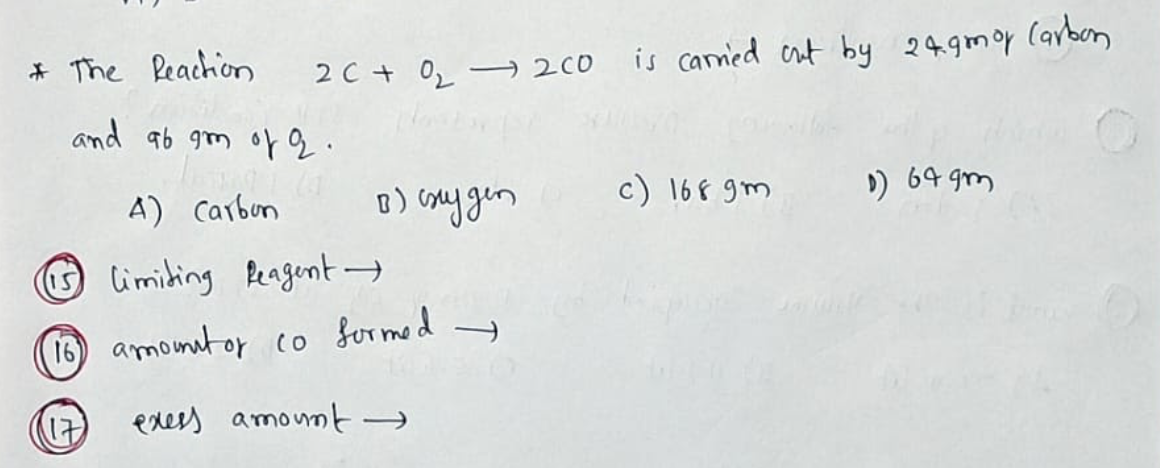 * The Reaction 2C + O₂ → 2CO is carried out by 24gm of Carbon
and 96 gm of O₂.
A) Carbon B) oxygen C) 168 gm D) 64 gm
15 limiting Reagent →
16 amount of CO formed →
17 exess amount →